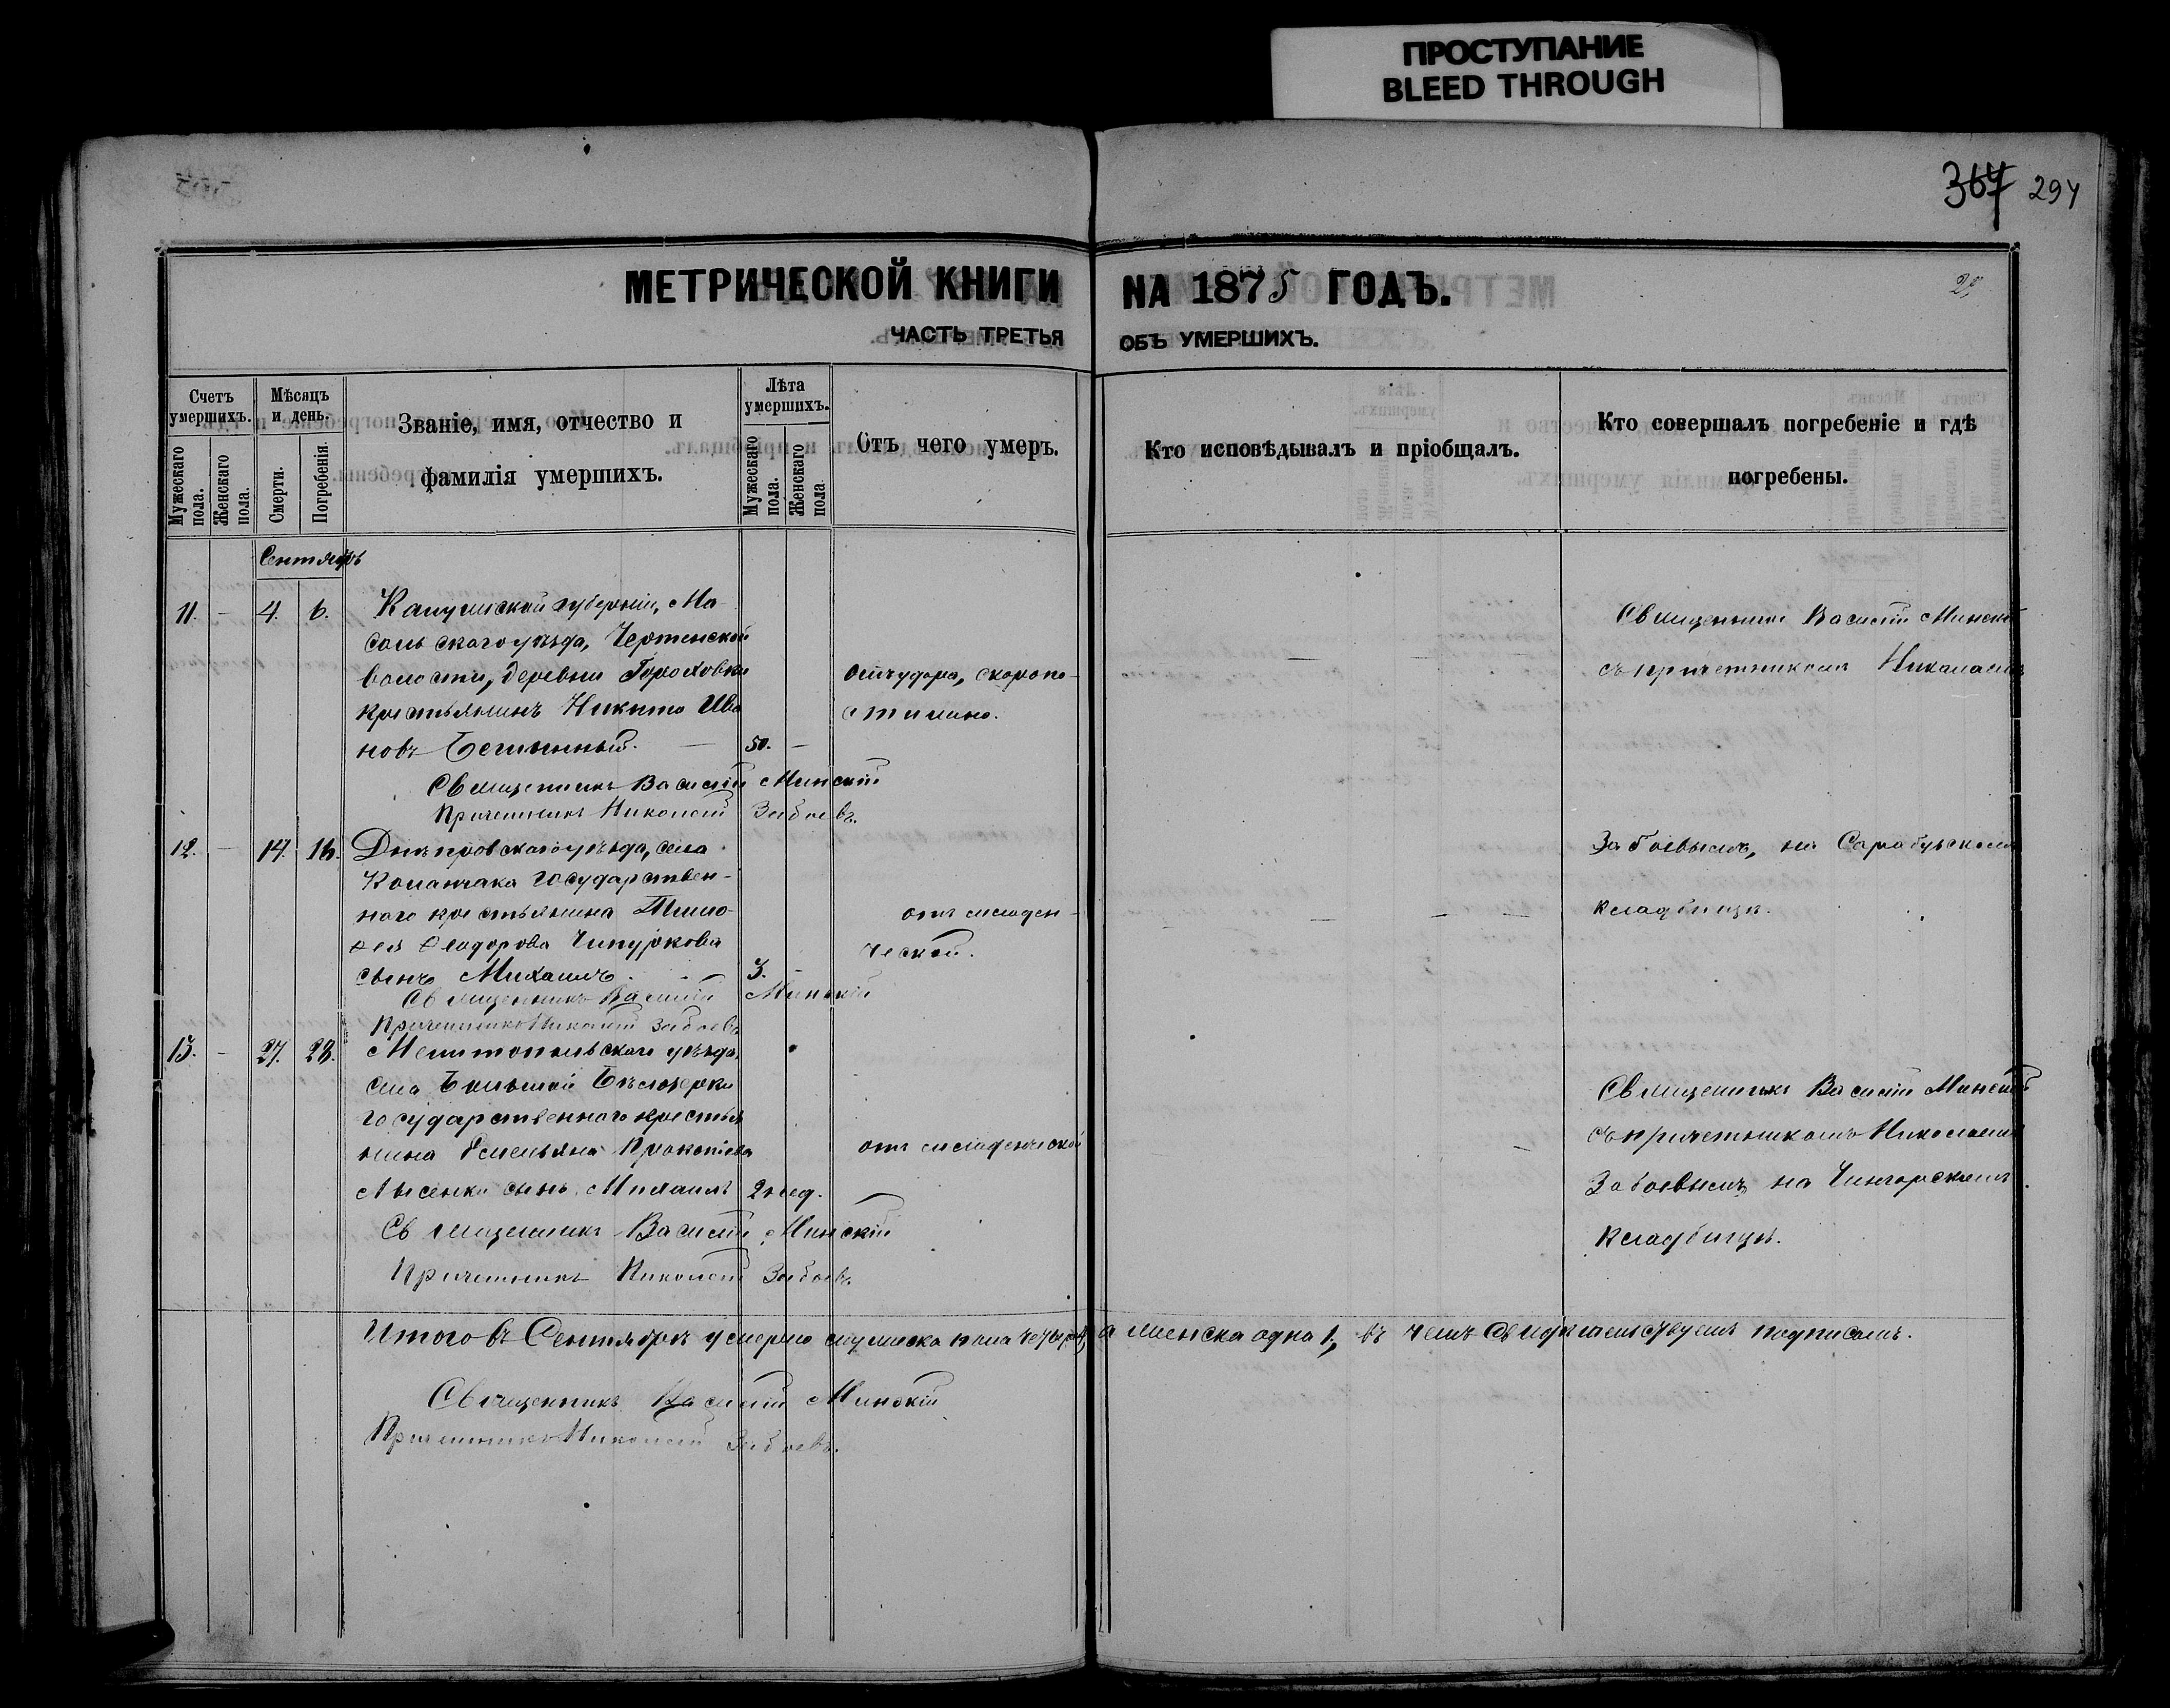 ПРОСТУПАНИЕ
BLEED THROUGH
367 294
МЕТРИЧЕСКОЙ КНИГИ НА 1875 ГОДЪ.
ЧАСТЬ ТРЕТЬЯ ОБЪ УМЕРШИХЪ.
Счетъ умершихъ.
Мужескаго пола.
Женскаго пола.
Мѣсяцъ и день.
Смерти.
Погребенія.
Званіе, имя, отчество и
фамилія умершихъ.
Лѣта умершихъ.
Мужескаго пола.
Женскаго пола.
Отъ чего умеръ.
Кто исповѣдывалъ и пріобщалъ.
Кто совершалъ погребеніе и гдѣ
погребены.
Сентябрь
11. – 4. 6.
Калужской губерніи, Мо-
сальскаго уѣзда, Чертенской
волости, деревни Гороховки
крестьянинъ Никита Ива
новъ 50. –
отъ удара, скоропо-
стижно.
Священникъ Василій Минскій
съ причетникомъ Николаемъ
Священникъ Василій Минскій
Причетникъ Николай Забоевъ.
12. – 14. 16.
Днѣпровскаго уѣзда, села
Каланчака государствен-
наго крестьянина Тимо-
ѳея Ѳеодорова
сынъ Михаилъ. 3. –
отъ младен-
ческой.
Забоевымъ, на Сарабузскомъ
кладбищѣ.
Священникъ Василій Минскій
Причетникъ Николай Забоевъ
13. – 27. 28.
Мелитопольскаго уѣзда,
села Большой Бѣлозерки
государственнаго крестья
нина Емельяна Прокопіева
Лысенки сынъ Михаилъ 2 нед.
отъ младенческой
Священникъ Василій Минскій
съ причетникомъ Николаемъ
Забоевымъ на Чингорскомъ
кладбищѣ.
Священникъ Василій Минскій
Причетникъ Николай Забоевъ.
Итого въ Сентябрѣ умерло мужеска пола четыре 4, а женска одна 1, въ чемъ свидѣтельствуемъ подписомъ.
Священникъ Василій Минскій
Причетникъ Николай Забоевъ.